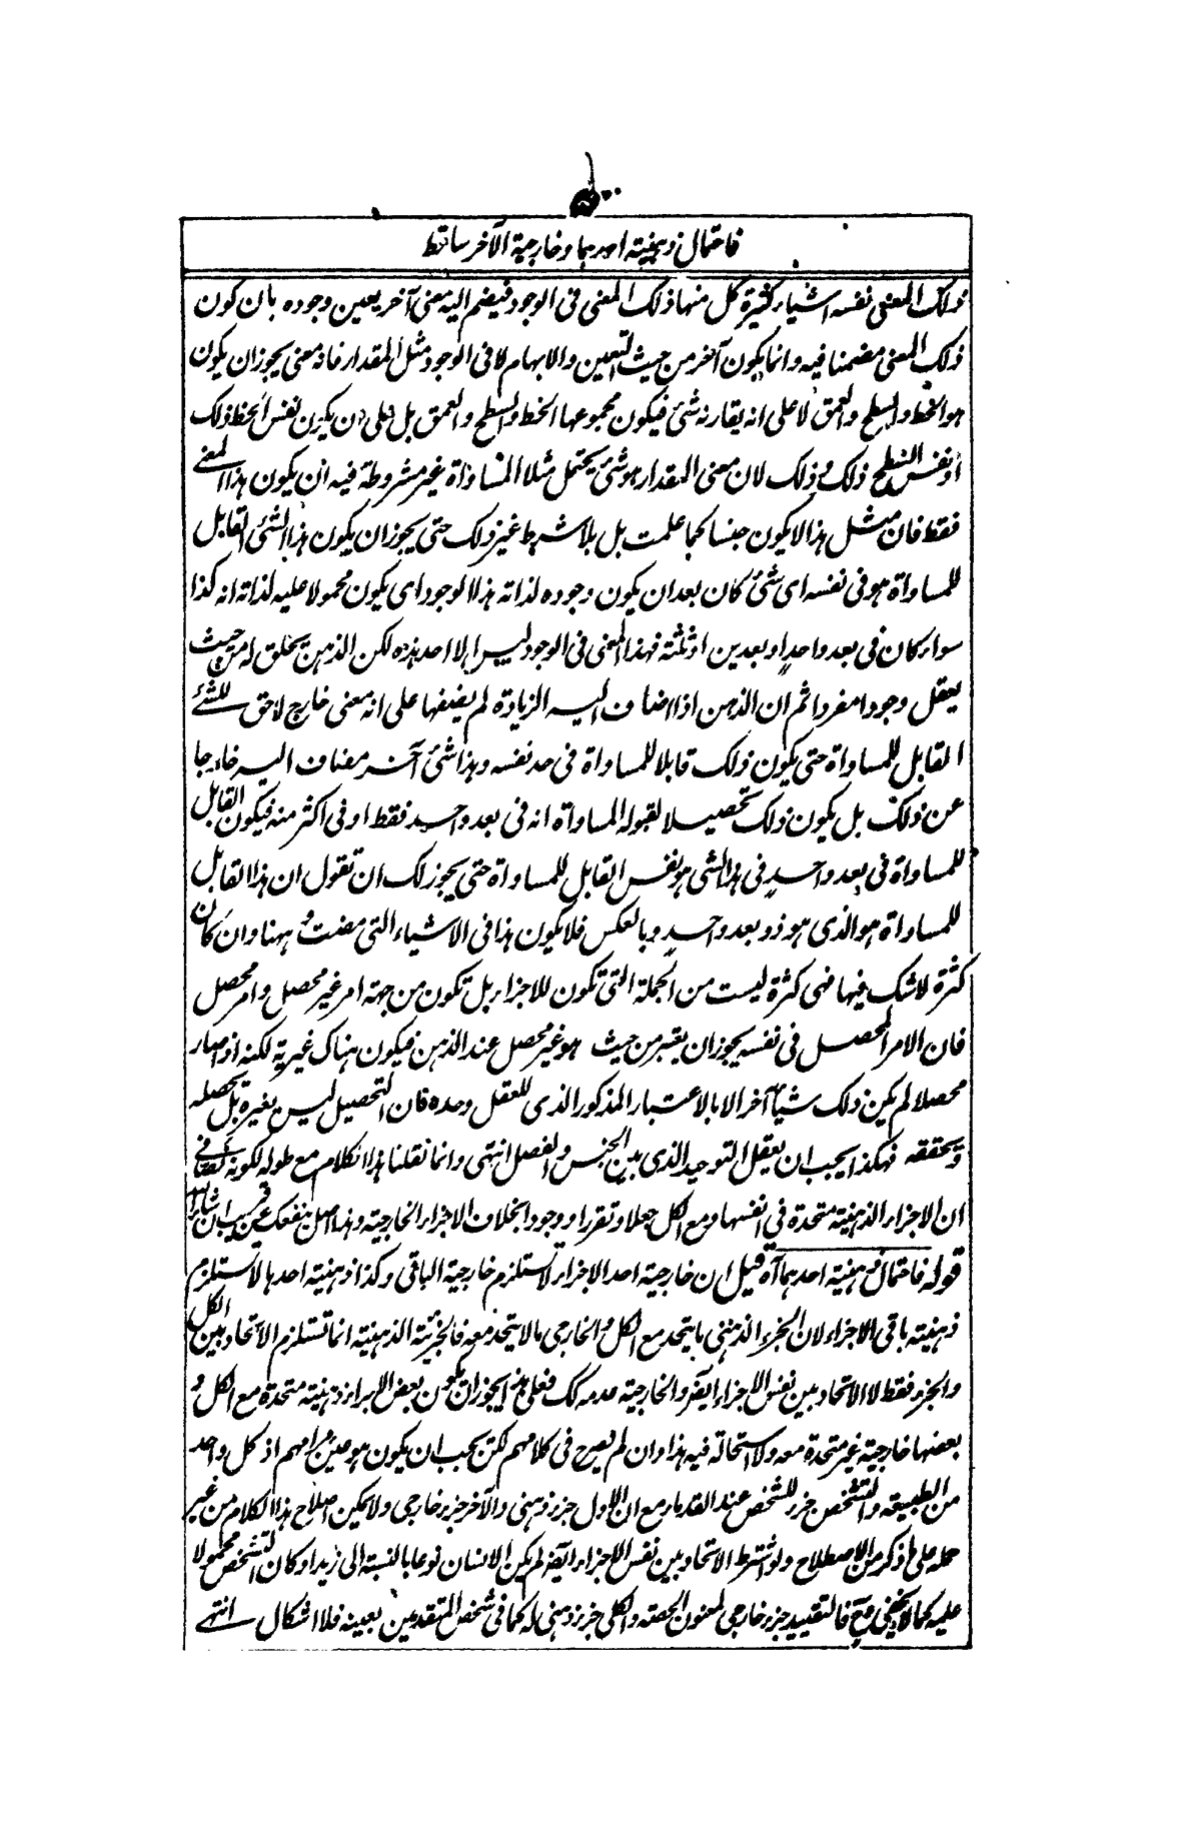 فاحتمال ذهنية احدهما وخارجية الآخر ساقط
ذلك المعنى نفسه اشياء كثيرة كل منها ذلك المعنى فى الوجود فيضم اليه معنى آخر يعين وجوده بان كون
ذلك المعنى مضمنا فيه وانما يكون آخر من حيث التعين والابهام لا فى الوجود مثل المقدار فانه معنى يجوز ان يكون
هو الخط والسطح والعمق لا على انه يقارنه شئ فيكون مجموعها الخط والسطح والعمق بل على ان يكون نفس الخط ذلك
او نفس السطح ذلك وذلك لان معنى المقدار هو شئ يحتمل مثلا المساواة غير مشروطة فيه ان يكون هذا المعنى
فقط فان مثل هذا لا يكون جنسا كما علمت بل بلا شرط غير ذلك حتى يجوز ان يكون هذا الشئ القابل
للمساواة هو فى نفسه اى شئ كان بعد ان يكون وجوده لذاته هذا الوجود اى يكون محمولا عليه لذاته انه كذا
سواء كان فى بعد واحد او بعدين او ثلثة فهذا المعنى فى الوجود ليس الا احد هذه لكن الذهن يخلق له من حيث
يعقل وجودا مفردا ثم ان الذهن اذا اضاف اليه الزيادة لم يضفها على انه معنى خارج لاحق للشئ
القابل للمساواة حتى يكون ذلك قابلا للمساواة فى حد نفسه وهذا شئ آخر مضاف اليه خارجا
عن ذلك بل يكون ذلك تحصيلا لقبوله المساواة انه فى بعد واحد فقط او فى اكثر منه فيكون القابل
للمساواة فى بعد واحد فى هذا الشئ هو نفس القابل للمساواة حتى يجوز لك ان تقول ان هذا القابل
للمساواة هو الذى هو ذو بعد واحد وبالعكس فلا يكون هذا فى الاشياء التى مضت و ههنا وان كان
كثرة لا شك فيها فهى كثرة ليست من الجملة التى تكون للاجزاء بل تكون من جهة امر غير محصل وامر محصل
فان الامر المحصل فى نفسه يجوز ان يعتبر من حيث هو غير محصل عند الذهن فيكون هناك غيرية لكنه اذا صار
محصلا لم يكن ذلك شيأ آخر الا بالاعتبار المذكور الذى للعقل وحده فان التحصيل ليس يغيره بل يحصله
ويحققه فهكذا يجب ان يعقل التوحيد الذى بين الجنس والفصل انتهى وانما نقلنا هذا الكلام مع طوله لكونه نصا فى
ان الاجزاء الذهنية متحدة فى انفسها ومع الكل جعلا وتقررا ووجودا بخلاف الاجزاء الخارجية وهذا اصل ينفعك عن قريب ان شاء الله
قوله فاحتمال ذهنية احدهما آه قيل ان خارجية احد الاجزاء لا تستلزم خارجية الباقى وكذا ذهنية احدها لا تستلزم
ذهنية باقى الاجزاء لان الجزء الذهنى ما يتحد مع الكل والخارجى ما لا يتحد معه فالجزئية الذهنية انما تستلزم الاتحاد بين الكل
والجزء فقط لا الاتحاد بين نفس الاجزاء ايضا والخارجية عدمه كك فعلى هذا يجوز ان يكون بعض الاجزاء ذهنية متحدة مع الكل و
بعضها خارجية غير متحدة معه ولا استحالة فيه هذا وان لم يصرح فى كلامهم لكن يجب ان يكون هو عين مرامهم اذ كل واحد
من الطبيعة والتشخص جزء للشخص عند القدماء مع ان الاول جزء ذهنى والآخر جزء خارجى ولا يمكن اصلاح هذا الكلام من غير
حمله على ما ذكر من الاصطلاح ولو اشترط الاتحاد بين نفس الاجزاء ايضا لم يكن الانسان نوعا بالنسبة الى زيد او كان التشخص محمولا
عليه كما لا يخفى وح فالتقييد جزء خارجى لمعنون الحصة والكلى جزء ذهنى له كما فى شخص المتقدمين بعينه فلا اشكال انتهى